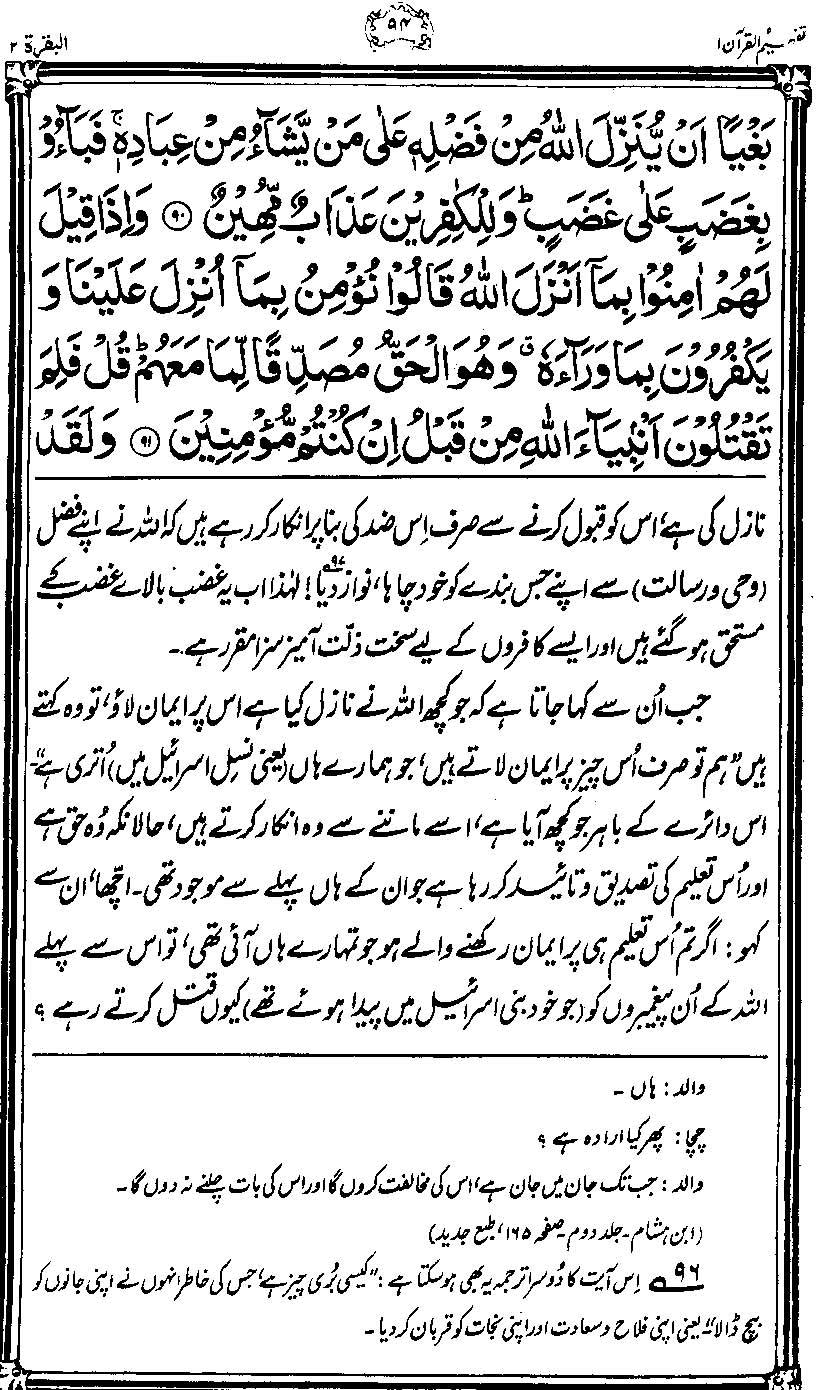 تفہیم القرآن ۱
۹۴
البقرۃ ۲
بَغْيًا اَنْ يُّنَزِّلَ اللّٰهُ مِنْ فَضْلِهٖ عَلٰى مَنْ يَّشَآءُ مِنْ عِبَادِهٖ ۚ فَبَآءُوْ
بِغَضَبٍ عَلٰى غَضَبٍ ؕ وَلِلْكٰفِرِيْنَ عَذَابٌ مُّهِيْنٌ ۹۰ وَاِذَا قِيْلَ
لَهُمْ اٰمِنُوْا بِمَاۤ اَنْزَلَ اللّٰهُ قَالُوْا نُؤْمِنُ بِمَاۤ اُنْزِلَ عَلَيْنَا وَ
يَكْفُرُوْنَ بِمَا وَرَآءَهٗ ۗ وَهُوَ الْحَقُّ مُصَدِّقًا لِّمَا مَعَهُمْ ؕ قُلْ فَلِمَ
تَقْتُلُوْنَ اَنْۢبِيَآءَ اللّٰهِ مِنْ قَبْلُ اِنْ كُنْتُمْ مُّؤْمِنِيْنَ ۹۱ وَلَقَدْ
نازل کی ہے، اس کو قبول کرنے سے صرف اِس ضد کی بنا پر انکار کر رہے ہیں کہ اللہ نے اپنے فضل
(وحی و رسالت) سے اپنے جس بندے کو خود چاہا، نواز دیا!۹۷ لہٰذا اب یہ غضب بالائے غضب کے
مستحق ہو گئے ہیں اور ایسے کافروں کے لیے سخت ذلّت آمیز سزا مقرر ہے۔
جب اُن سے کہا جاتا ہے کہ جو کچھ اللہ نے نازل کیا ہے اس پر ایمان لاؤ، تو وہ کہتے
ہیں ”ہم تو صرف اُس چیز پر ایمان لاتے ہیں، جو ہمارے ہاں (یعنی نسلِ اسرائیل میں) اُتری ہے“۔
اس دائرے کے باہر جو کچھ آیا ہے، اسے ماننے سے وہ انکار کرتے ہیں، حالانکہ وُہ حق ہے
اور اُس تعلیم کی تصدیق و تائید کر رہا ہے جو ان کے ہاں پہلے سے موجود تھی۔ اچھا، ان سے
کہو: اگر تم اُس تعلیم ہی پر ایمان رکھنے والے ہو جو تمہارے ہاں آئی تھی، تو اس سے پہلے
اللہ کے اُن پیغمبروں کو (جو خود بنی اسرائیل میں پیدا ہوئے تھے) کیوں قتل کرتے رہے ؟
والد: ہاں۔
چچا: پھر کیا ارادہ ہے ؟
والد: جب تک جان میں جان ہے، اس کی مخالفت کروں گا اور اس کی بات چلنے نہ دوں گا۔
(ابن ہشام۔ جلد دوم۔ صفحہ ۱۶۵، طبع جدید)
۹۶ اِس آیت کا دُوسرا ترجمہ یہ بھی ہو سکتا ہے: ”کیسی بُری چیز ہے، جس کی خاطر انہوں نے اپنی جانوں کو
بیچ ڈالا“ یعنی اپنی فلاح و سعادت اور اپنی نجات کو قربان کر دیا۔